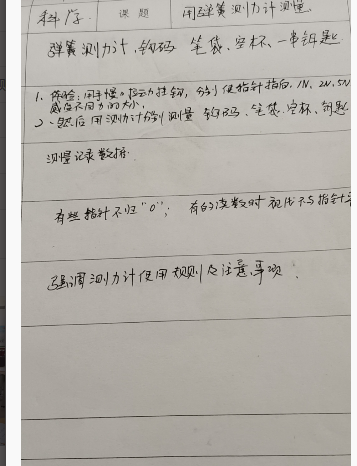 科学 课题 用弹簧测力计测量
弹簧测力计、钩码 笔袋、空杯、一串钥匙
1、体验:用手慢慢拉动挂钩,分别使指针指向,1N、2N、5N
感受不同力的大小,
2、然后用测力计分别测量 钩码、笔袋、空杯、钥匙
测量记录数据.
有些指针不归“0”; 有的读数时视线不与指针
强调测力计使用规则及注意事项.